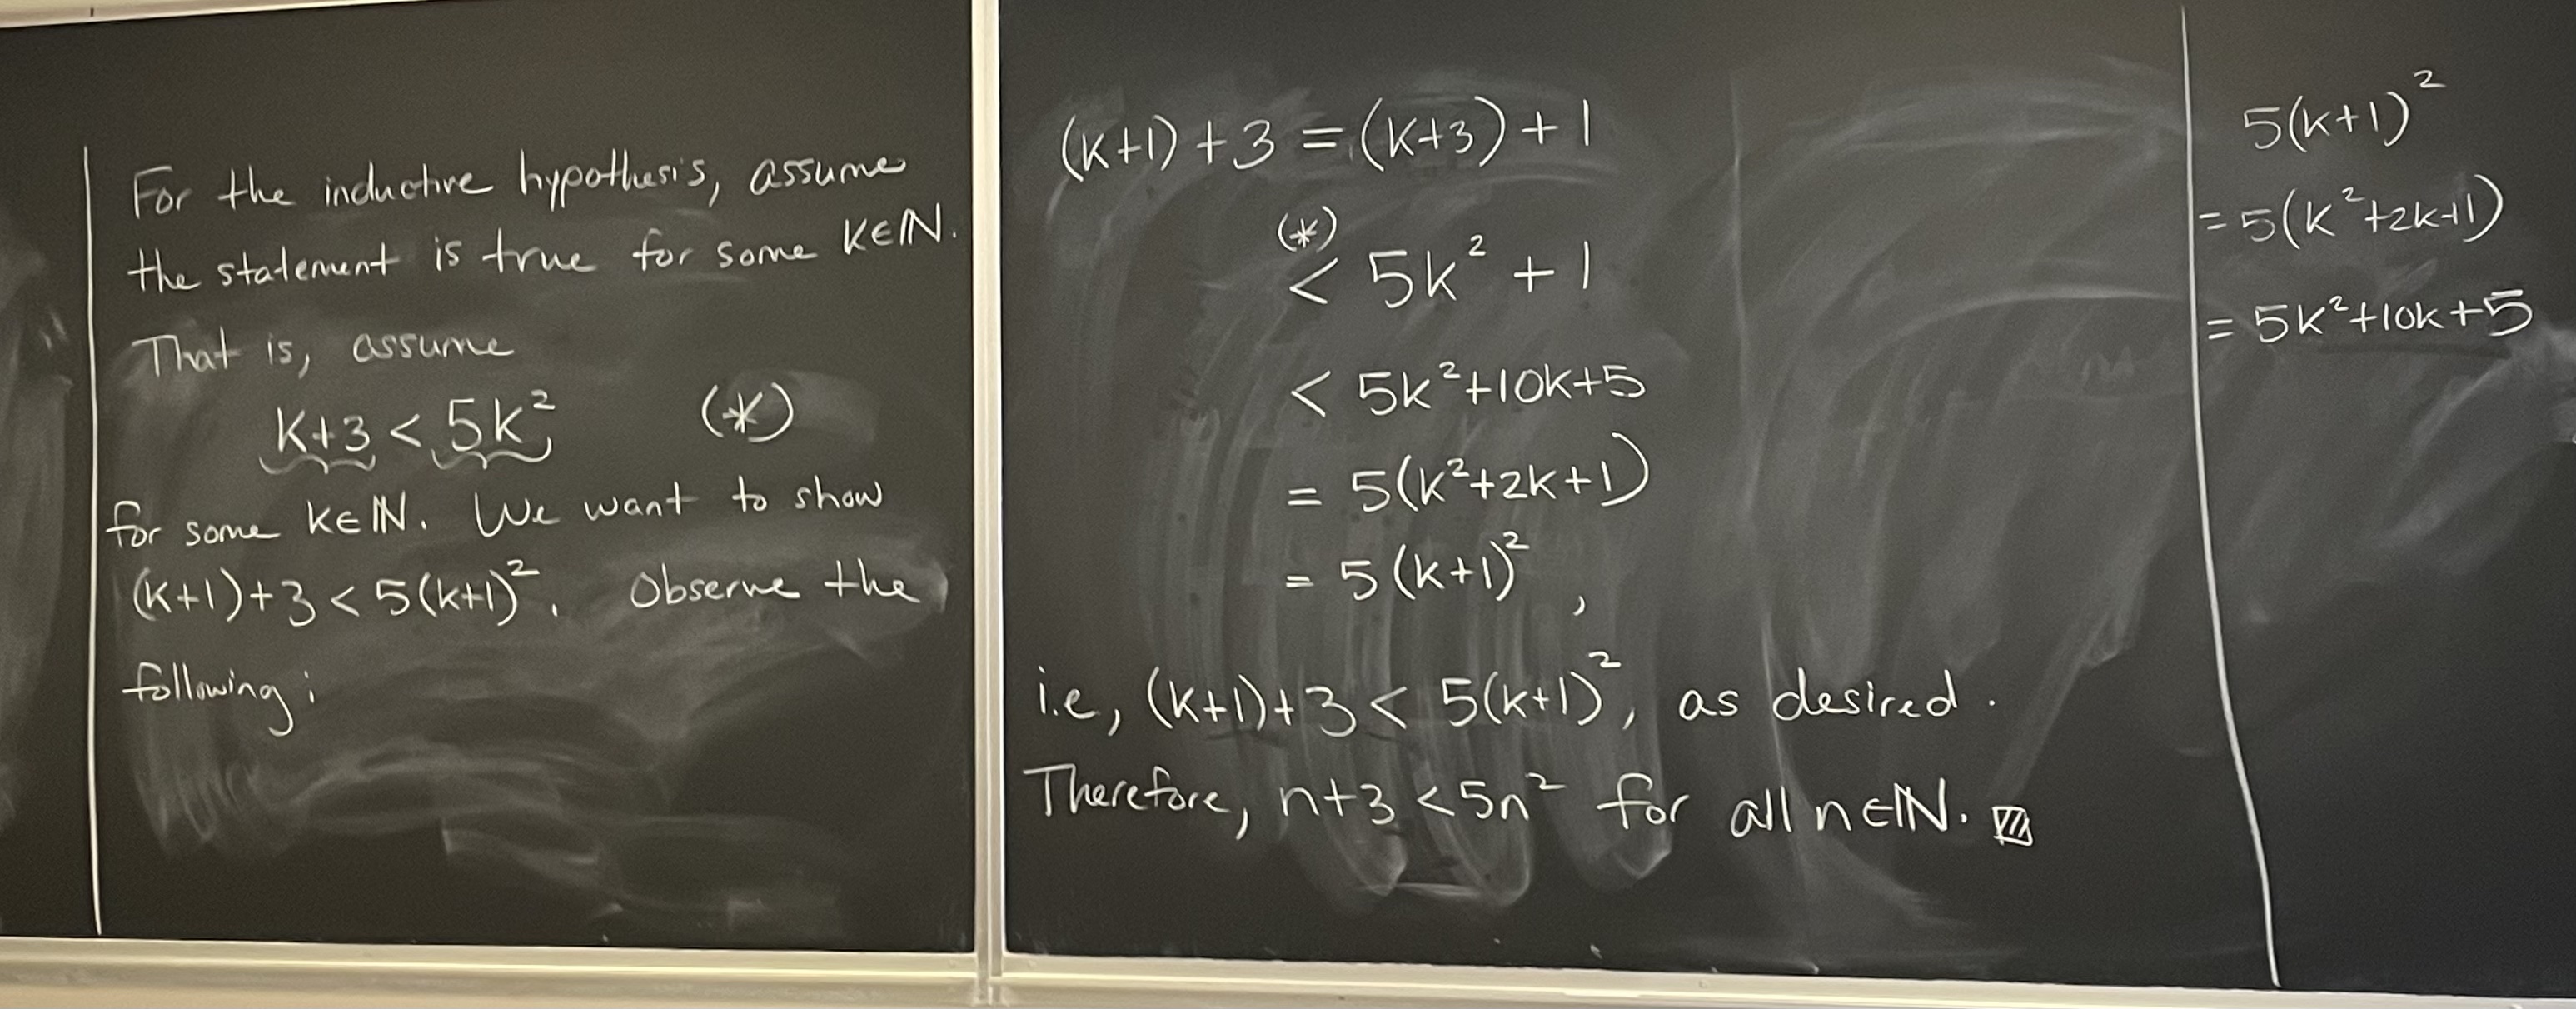 For the inductive hypothesis, assume
the statement is true for some k∈ℕ.
That is, assume
k+3 < 5k² (*)
for some k∈ℕ. We want to show
(k+1)+3 < 5(k+1)². Observe the
following:
(k+1)+3 = (k+3)+1
(*)
< 5k² + 1
< 5k²+10k+5
= 5(k²+2k+1)
= 5(k+1)²,
i.e, (k+1)+3 < 5(k+1)², as desired.
Therefore, n+3 < 5n² for all n∈ℕ. ▨
5(k+1)²
= 5(k²+2k+1)
= 5k²+10k+5